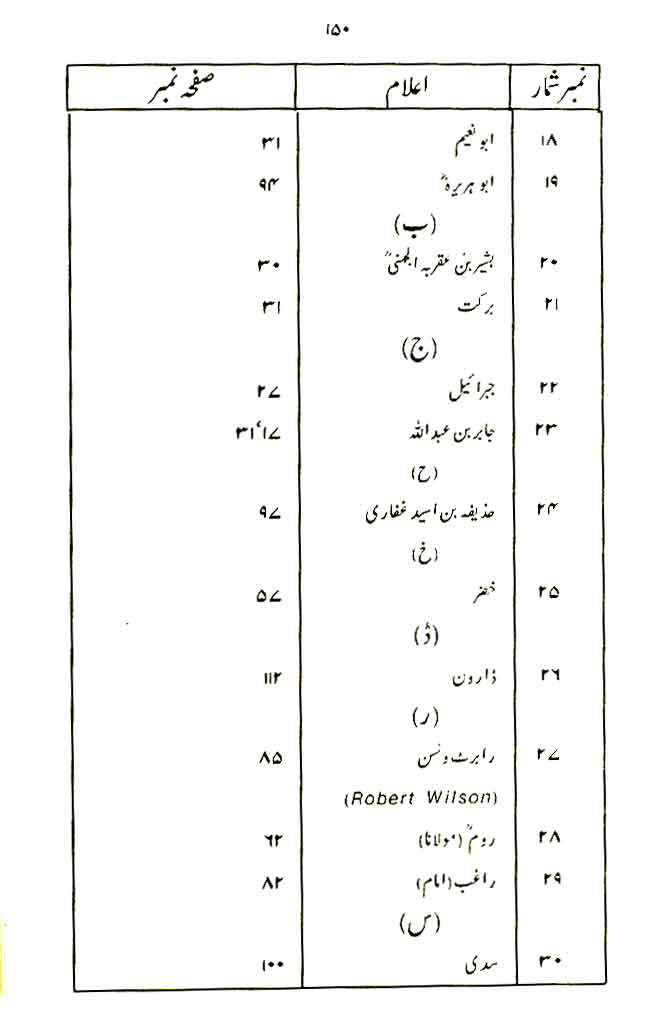 ۱۵۰
نمبر شمار اعلام صفحہ نمبر
۱۸ ابو نعیم ۳۱
۱۹ ابو ہریرہؓ ۹۴
(ب)
۲۰ بشیر بن عقربہ الجہنیؓ ۳۰
۲۱ برکت ۳۱
(ج)
۲۲ جبرائیل ۲۷
۲۳ جابر بن عبد اللہ ۱۷‘۳۱
(ح)
۲۴ حذیفہ بن اسید غفاری ۹۷
(خ)
۲۵ خضر ۵۷
(ڈ)
۲۶ ڈارون ۱۱۲
(ر)
۲۷ رابرٹ ولسن ۸۵
(Robert Wilson)
۲۸ رومؒ (مولانا) ۶۲
۲۹ راغب (امام) ۸۲
(س)
۳۰ سدی ۱۰۰